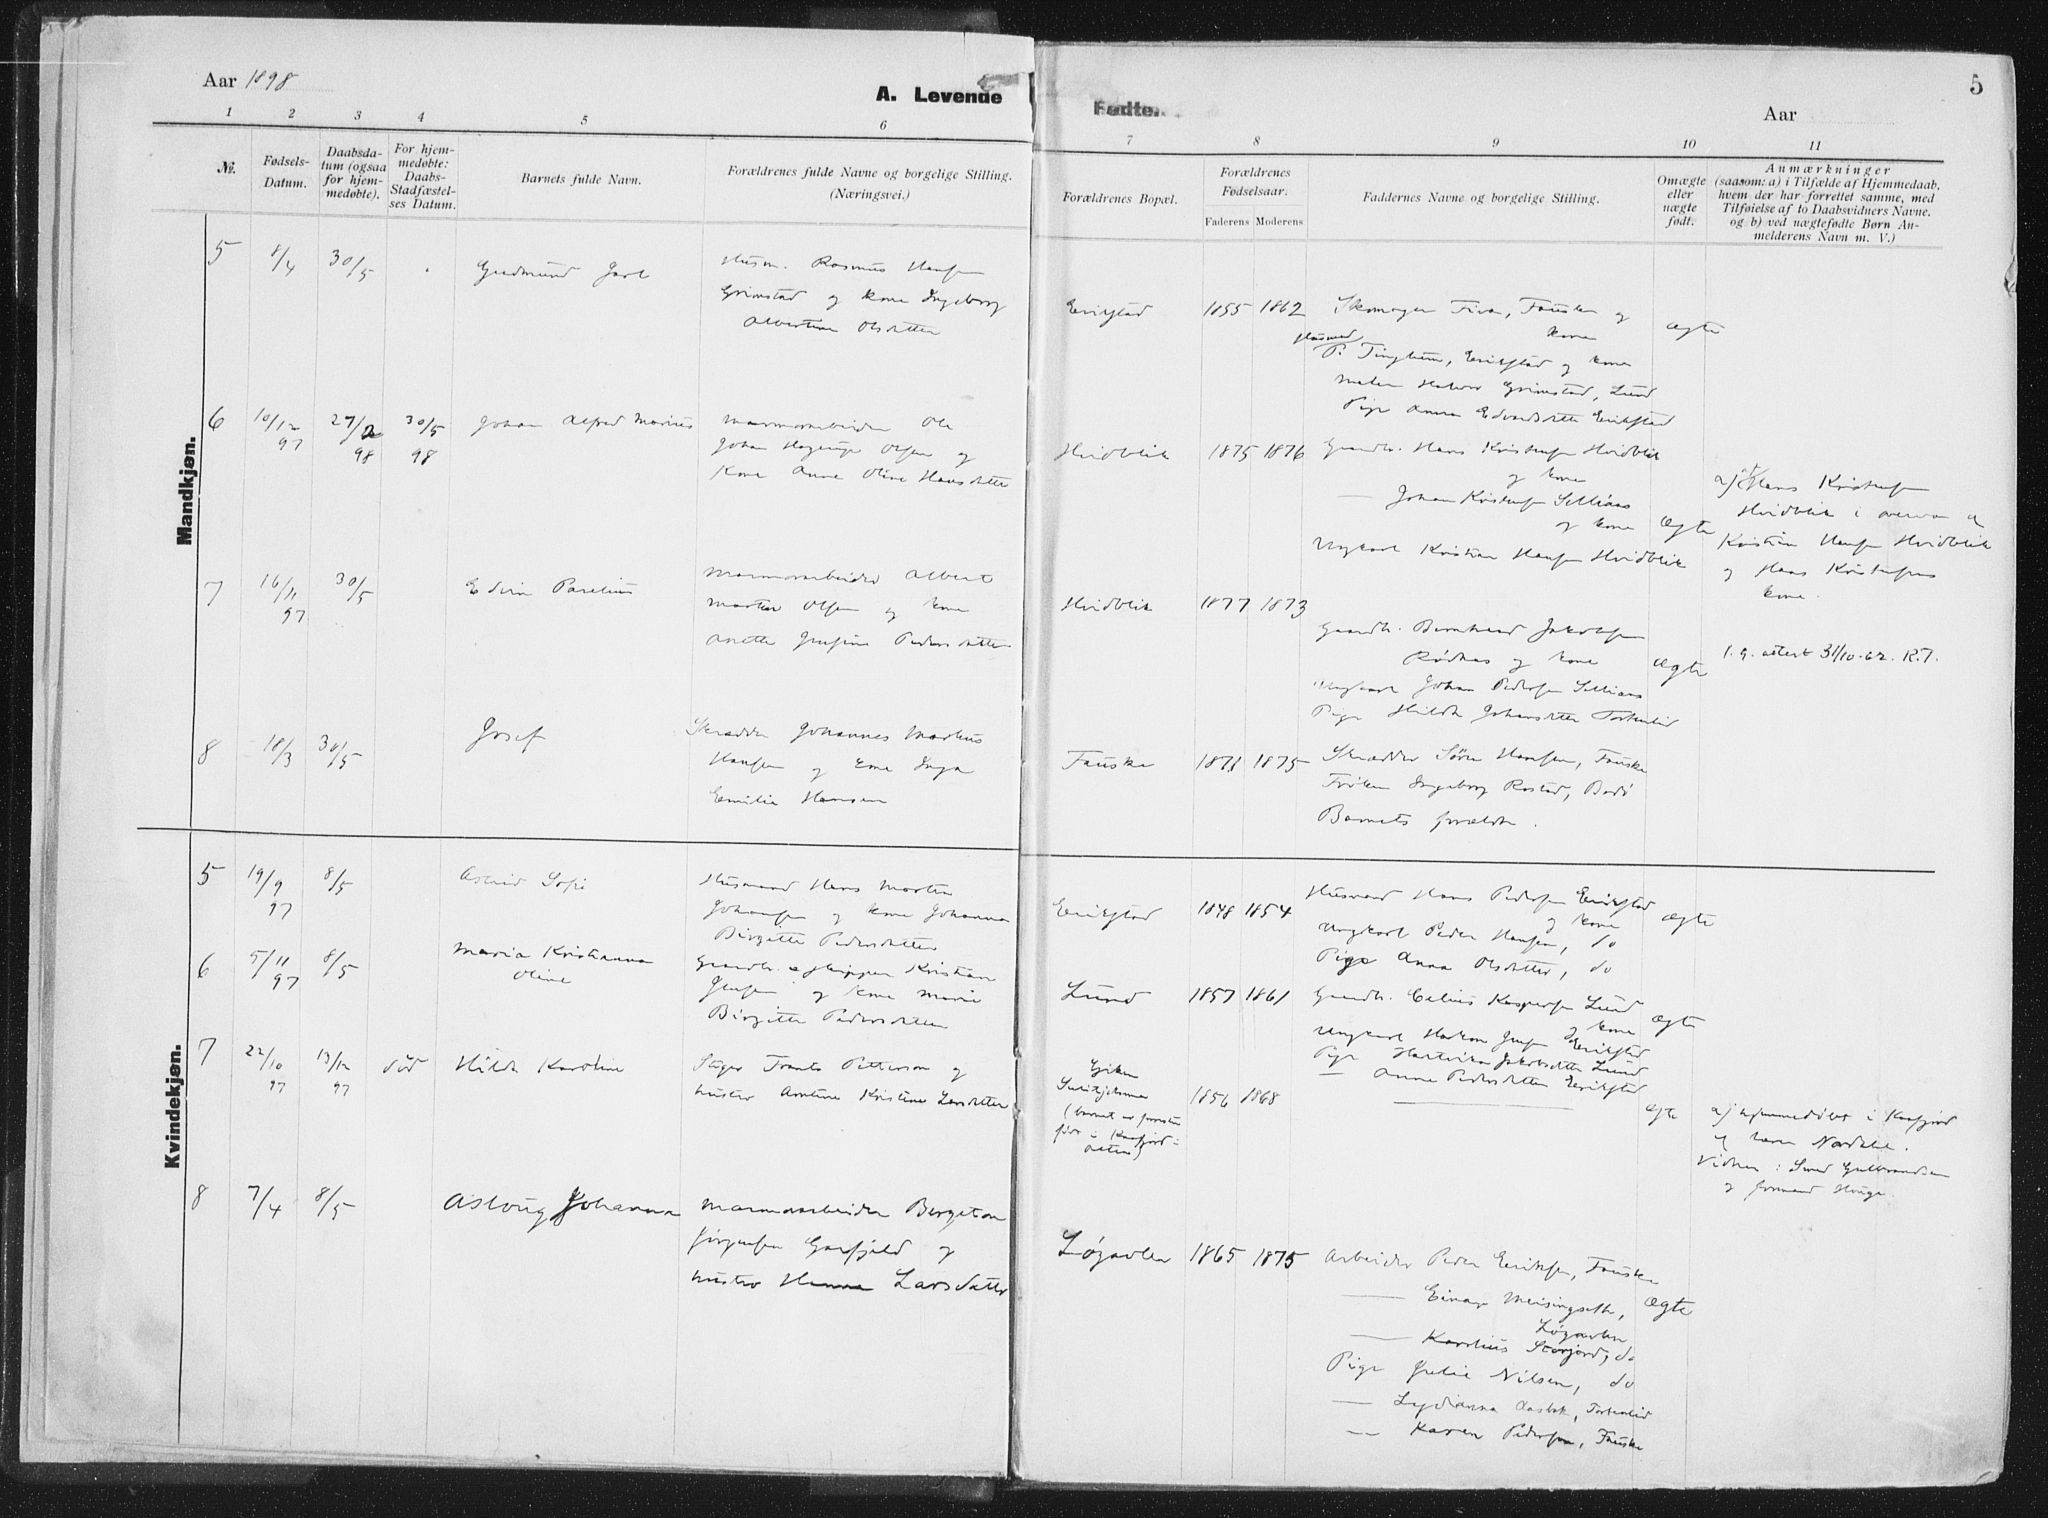 Aar 1898
A. Levende
Fødte.
Aar
5
1 2 3 4 5 6 7 8 9 10 11
№.
Fødsels-
Datum.
Daabsda-
tum (ogsaa
for hjem-
medøbte).
For hjem-
medøbte:
Daabs-
Stadfæstel-
ses Datum.
Barnets fulde Navn.
Forældrenes fulde Navne og borgelige Stilling.
(Næringsvei.)
Forældrenes Bopæl.
Forældrenes
Fødselsaar.
Faderens Moderens
Faddernes Navne og borgelige Stilling.
Omægte
eller
uægte
født.
Anmærkninger
(saasom: a) i Tilfælde af Hjemmedaab,
hvem der har forrettet samme, med
Tilføielse af to Daabsvidners Navne.
og b) ved uægtefødte Børn An-
melderens Navn m. V.)
Mandkjøn.
5 8/4 30/5 Gudmund Jarl
Husm. Rasmus Hansen
Grimstad og kone Ingeborg
Albertine Olsdatter
Erikstad 1855 1862
Skomager Fauske og
kone
Husmd P. Tinghem, Erikstad og kone
Halvor Grimstad, Lund
Pige Anna Edvardsdtter Erikstad
ægte
6 10/12 97 27/2 98 30/5 98 Johan Alfred Marius
Marmorarbeider Ole
Johan Hagerup Olsen og
Kone Anne Oline Hansdatter
Hvidblik 1875 1876
Gaardbr. Hans Kristensen Hvidblik
og kone
— Johan Kristensen Selliaas
og kone
Ungkarl Kristian Hansen Hvidblik
ægte
a) Hans Kristensen
Hvidblik i overvær af
Kristian Hansen Hvidblik
og Hans Kristensens
kone.
7 16/11 97 30/5 Edvin Parelius
Marmorarbeider Albert
Martin Olsen og kone
Anette Jensine Pedersdatter
Hvidblik 1877 1873
Gaardbr. Bernhard Jakobsen
Rødaas og kone
Ungkarl Johan Pedersen Selliaas
Pige Hilda Johansdtter Tortenlid
ægte
f. g. attest 31/10-62. R.T.
8 18/3 30/5 Josef
Skrædder Johannes Markus
Hansen og kone Inga
Emilie Hansen
Fauske 1871 1875
Skrædder Søren Hansen, Fauske
Frøken Ingeborg Rostad, Bodø
Barnets forældre.
Kvindekjøn.
5 19/9 97 8/5 Astrid Sofie
Husmand Hans Morten
Johansen og kone Johanna
Birgitte Pedersdatter
Erikstad 1848 1854
Husmand Hans Pedersen Erikstad
og kone
Ungkarl Peder Hansen, do
Pige Anna Olsdatter, do
ægte
6 5/11 97 8/5 Maria Kristianna
Oline
Gaardbr. & skipper Kristian
Jensen og kone Marie
Birgitte Pedersdatter
Lund 1857 1861
Gaardbr. Kaspersen Lund
og kone
Ungkarl Hakon Jensen Erikstad
Pige Hartvika Jakobsdtter Lund
— Anne Pedersdatter Erikstad
ægte
7 22/10 97 13/12 97 død Hilda Karoline
Stiger Frants Petterson og
hustru Amtine Kristine Larsdatter
Gjiken
Sulitjelma
(barnet er
født i Kaafjord i
Alten)
1856 1868
ægte
a) hjemmedøbt i Kaafjord
af
Vidner: Gulbrandsen
og formand Houge.
8 7/4 8/5 Aslaug Johanna
Marmorarbeider Bergeton
Jørgensen Garfjeld og
hustru Hanna Larsdatter
Løgavlen 1865 1875
Arbeider Peder Eriksen, Fauske
— Einar Meisingseth,
Løgavlen
— Karelius Storjord, do
Pige Julie Nilsen, do
— Lydianna Aasbak, Tortenlid
— Karen Pedersen, Fauske
ægte